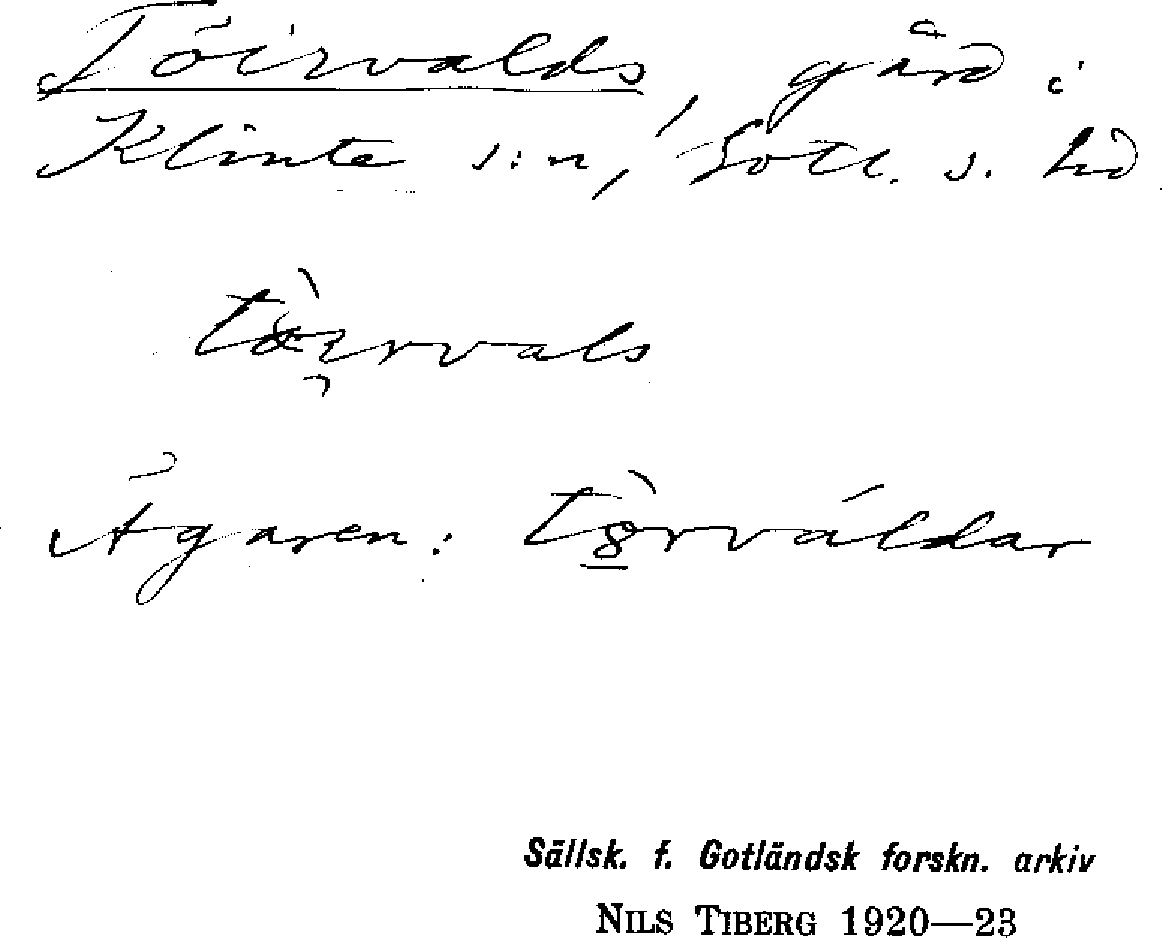 Töirvalds, gård i
Klinte s:n, Gotl. s. hd
Ägaren:
Sällsk. f. Gotländsk forskn. arkiv
NILS TIBERG 1920—23